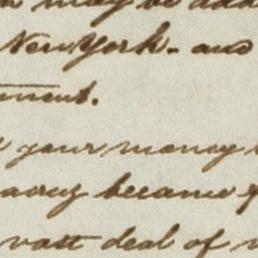 may be add
New York - and
ment.
your money
became
vast deal of